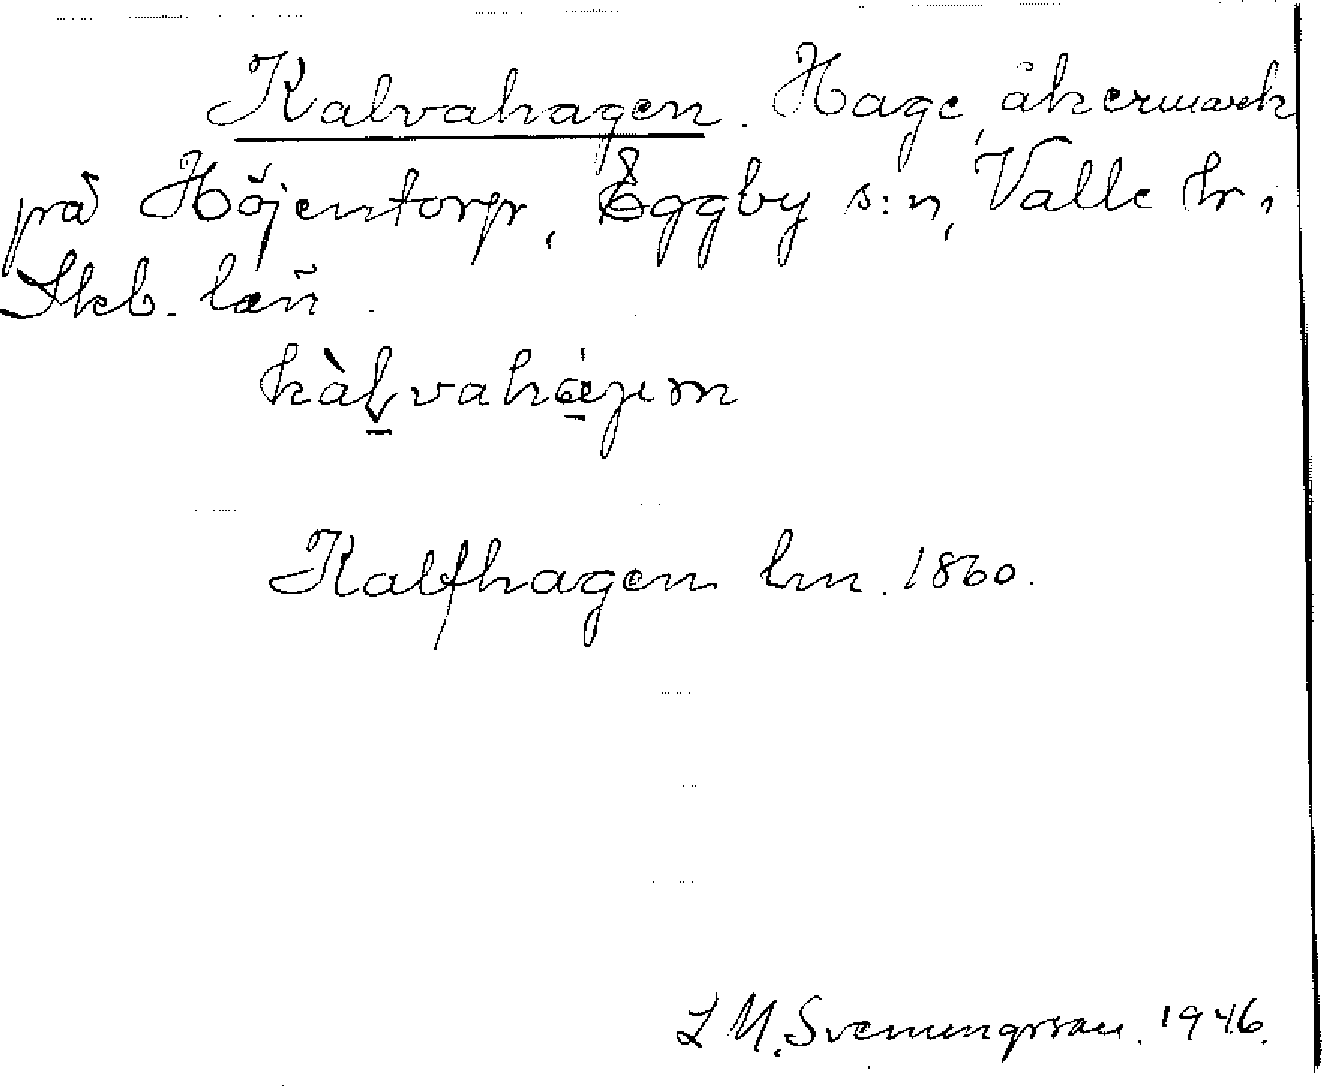 Kalvahagen. Hage, åkermark
på Höjentorp, Eggby s:n, Valle hr,
Skb. län.
kàḻvahá̱gɛn
Kalfhagen lm. 1860.
L M. Svenungsson. 1946.